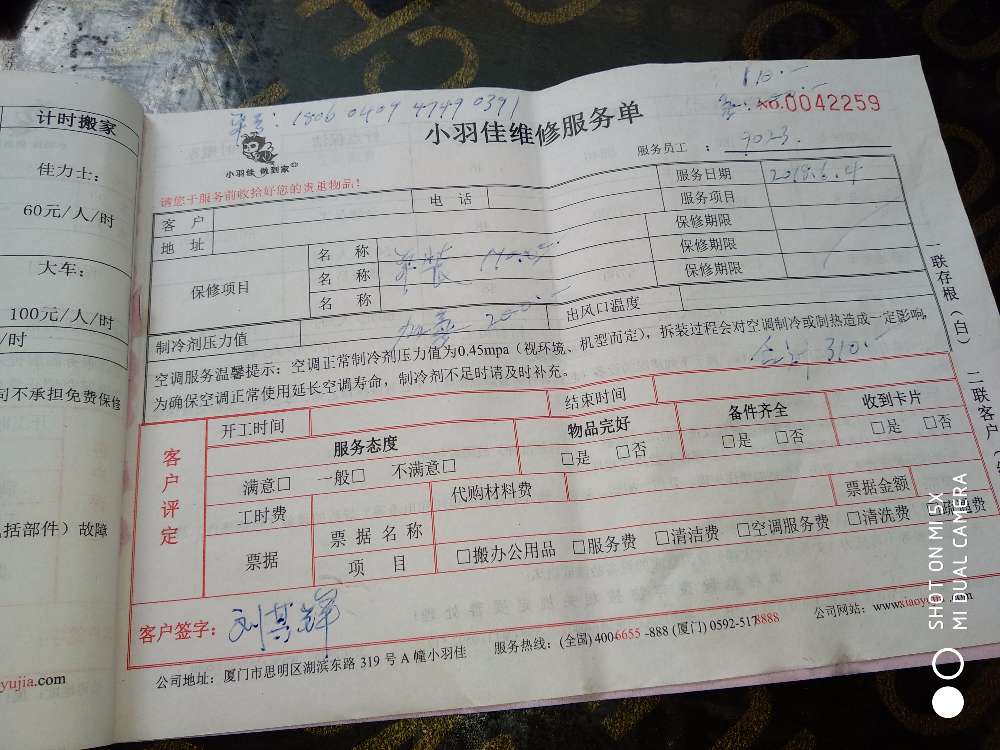 计时搬家
佳力士:
60元/人/时
大车:
100元/人/时
/时
司不承担免费保修
括部件）故障
yujia.com
1806 0409 4749 0391
110.-
No.0042259
小羽佳 做到家
小羽佳维修服务单
服务员工 : 9023.
请您于服务前收拾好您的贵重物品!
客 户 电 话 服务日期 2018.6.4
地 址 服务项目
保修项目 名 称 保修期限
名 称 保修期限
名 称 保修期限
制冷剂压力值 200.- 出风口温度
空调服务温馨提示: 空调正常制冷剂压力值为0.45mpa（视环境、机型而定），拆装过程会对空调制冷或制热造成一定影响,
为确保空调正常使用延长空调寿命，制冷剂不足时请及时补充。
合计 310.-
一联存根（白）
二联客户
客户评定
开工时间 结束时间
服务态度 物品完好 备件齐全 收到卡片
满意□ 一般□ 不满意□ □是 □否 □是 □否 □是 □否
工时费 代购材料费 票据金额
票据 票 据 名 称
项 目 □搬办公用品 □服务费 □清洁费 □空调服务费 □清洗费
客户签字:
公司地址: 厦门市思明区湖滨东路 319 号 A 幢小羽佳 服务热线: (全国) 4006655 -888 (厦门) 0592-5178888 公司网站: www.xiaoyujia.com
SHOT ON MI 5X
MI DUAL CAMERA